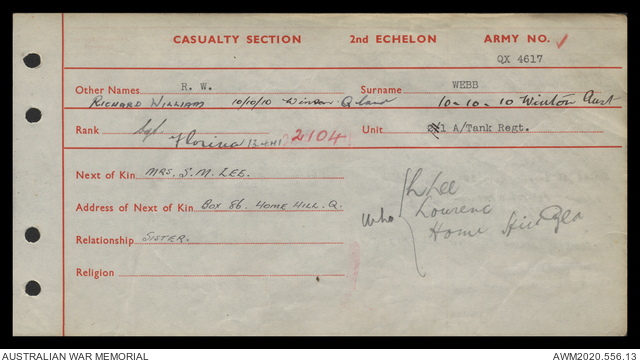 CASUALTY SECTION 2nd ECHELON ARMY NO.
QX 4617
Other Names R. W. Surname WEBB
RICHARD WILLIAM 10/10/10 Winton Q'land 10-10-10 Winton Aust
Rank Sgt. Unit 2/1 A/Tank Regt.
Florina 13.4.41 2104
Next of Kin MRS. S. M. LEE.
Address of Next of Kin Box 86. HOME HILL. Q.
Relationship SISTER.
Religion
Who
Lee
Home Hill Qld
AUSTRALIAN WAR MEMORIAL AWM2020.556.13